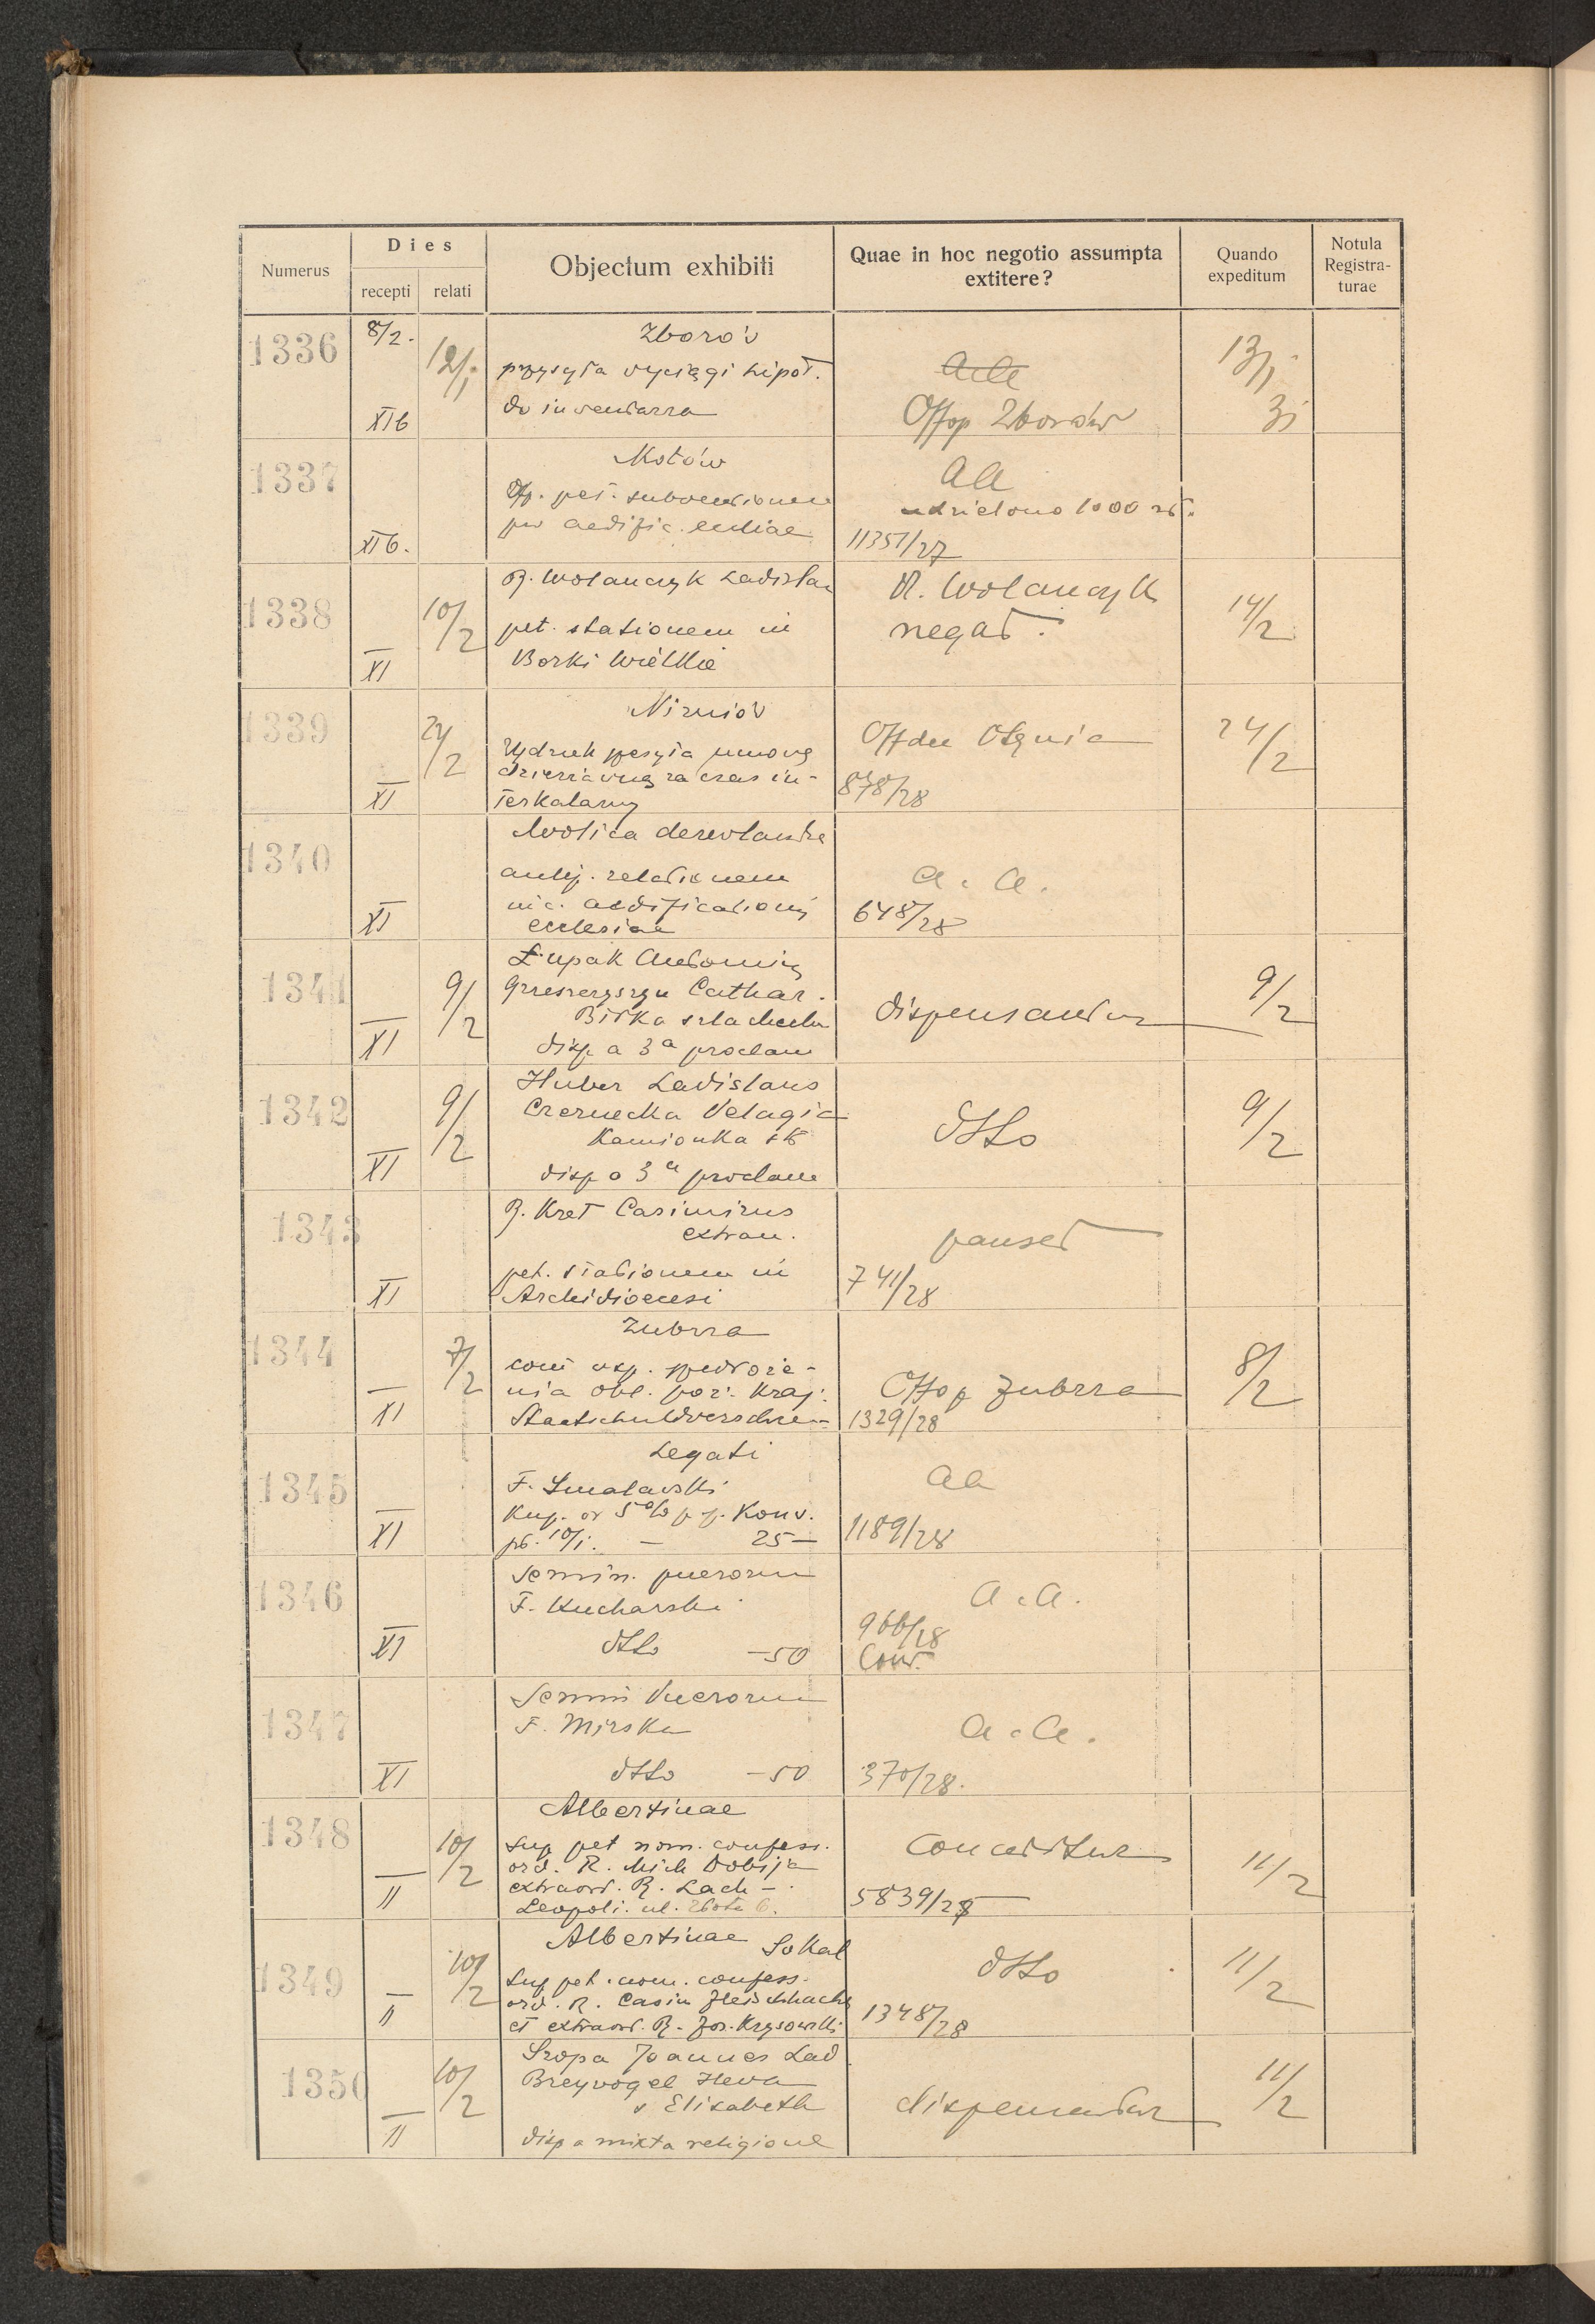 Numerus
Dies
recepti relati
Objectum exhibiti
Quae in hoc negotio assumpta
extitere?
Quando
expeditum
Notula
Registra-
turae
1336 8/2.
XIb
Zborów
przysyła wyciągi hipot.
do inwentarza
Offop Zborów
1337
XIb.
pet. subventionem
pro aedific.
aa
udzielono 1000 zł.
11351/27
1338 10/2
XI
R. Wołańczyk Ladislau
pet. stationem in
Borki Wielkie
R. Wołańczyk
negat.
14/2
1339 24/2
XI
Nizniów
umowę
dzierżawną za czas in-
terkalarny
878/28
24/2
1340
XI
Wolica derewlańska
relationem
aedificationis
ecclesiae
a. a.
648/28
1341 9/2
XI
Łupak
Cathar.
Biłka szlachecka
disp a 3a proclam
dispensantur
9/2
1342 9/2
XI
Huber Ladislaus
Czernecka Pelagia
Kamionka
disp a 3a proclam
dtto
9/2
1343
XI
R. Kret Casimirus
extran.
pet. stationem in
Archidioecesi
741/28
1344 7/2
XI
Zubrza
nia obl. poż. kraj.
Offop Zubrza
1329/28
8/2
1345
XI
Legati
F. Smalawski
Kup. od 5% p. p. Konw.
25—
aa
1189/28
1346
XI
Semin. puerorum
F. Kucharski
dtto —50
a. a.
966/28
Conv.
1347
XI
Semin Puerorum
F. Mirska
dtto —50
a. a.
370/28.
1348 10/2
II
Albertinae
Sup pet nom. confess.
ord. R. Mich Dobija
extraord. R. Lach —
Leopoli. ul. Złota 6.
Conceditur
11/2
1349 10/2
II
Albertinae Sokal
Sup pet. nom. confess.
ord. R. Casim
et extraord. R. Jos. Krysowski
dtto
1348/28
11/2
1350 10/2
II
Szopa Joannes Lad
Breyvogel Heva
v Elisabeth
disp a mixta religione
dispensantur
11/2